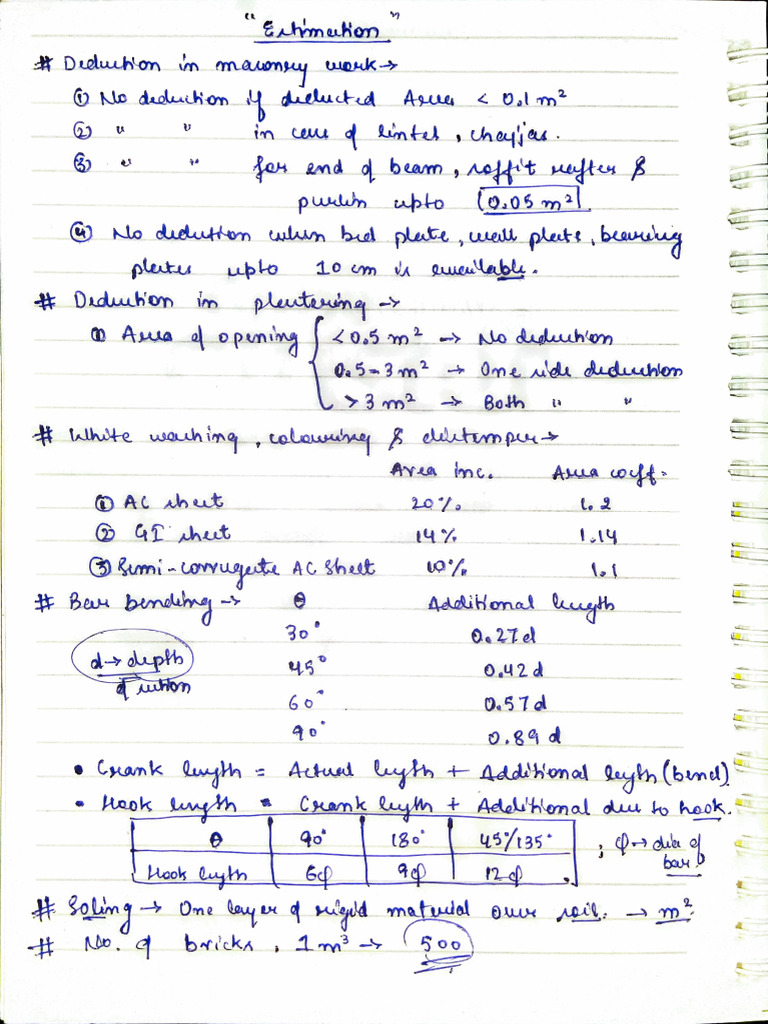 "Estimation"
# Deduction in masonry work →
① No deduction if deducted Area < 0.1 m²
② " " in case of lintel, chajjas.
③ " " for end of beam, soffit rafter &
purlin upto 0.05 m²
④ No deduction when bed plate, wall plate, bearing
plates upto 10 cm is available.
# Deduction in plastering →
① Area of opening { < 0.5 m² → No deduction
0.5 - 3 m² → One side deduction
> 3 m² → Both " "
# White washing, colouring & distemper →
Area inc. Area coeff.
① AC sheet 20% 1.2
② GI sheet 14% 1.14
③ Semi-corrugate AC Sheet 10% 1.1
# Bar bending → θ Additional length
30° 0.27d
d → depth 45° 0.42d
of section 60° 0.57d
90° 0.89d
• Crank length = Actual length + Additional length (bend)
• Hook length = Crank length + Additional due to hook.
θ 90° 180° 45°/135° ; φ → dia of
Hook length 6φ 9φ 12φ bar
# Soling → One layer of rigid material over soil. → m²
# No. of bricks, 1 m³ → 500